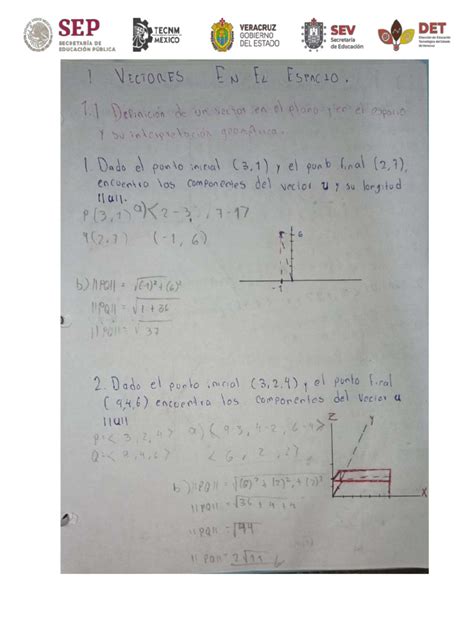 SEP
SECRETARÍA DE
EDUCACIÓN PÚBLICA
TECNM
MÉXICO
VERACRUZ
GOBIERNO
DEL ESTADO
SEV
Secretaría
de Educación
DET
1 VECTORES EN EL ESPACIO.
1.1 Definición de un vector en el plano y en el espacio
y su interpretación geométrica.
1. Dado el punto inicial (3,1) y el punto final (2,7),
encuentra los componentes del vector u y su longitud
||u||.
P(3,1) a) < 2-3, 7-1>
q(2,7) (-1, 6)
6
-1
b) ||PQ|| = √(-1)²+(6)²
||PQ|| = √1+36
||PQ|| = √37
2. Dado el punto inicial (3,2,4) y el punto final
(9,4,6) encuentra los componentes del vector u
||u||
P=< 3,2,4> a) (9-3, 4-2, 6-4>
Q=< 9,4,6> < 6, 2, 2>
Z
Y
X
b) ||PQ|| = √(6)²+(2)²+(2)²
||PQ|| = √36+4+4
||PQ|| = √44
||PQ|| = 2√11